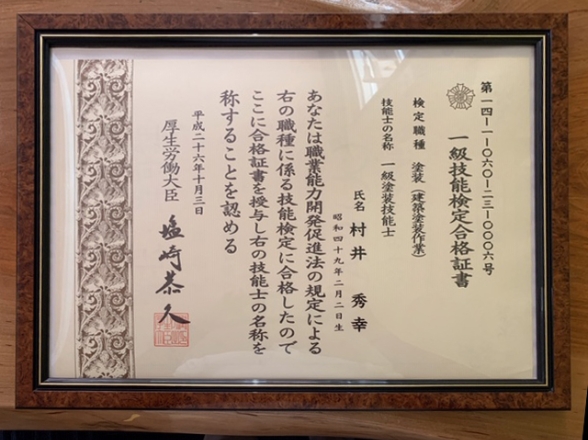 第一四-一-〇六〇-二三-〇〇〇六号
一級技能検定合格証書
検定職種 塗装(建築塗装作業)
技能士の名称 一級塗装技能士
氏名 村井 秀幸
昭和四十九年二月二日生
あなたは職業能力開発促進法の規定による
右の職種に係る技能検定に合格したので
ここに合格証書を授与し右の技能士の名称を
称することを認める
平成二十六年十月三日
厚生労働大臣 塩崎恭久